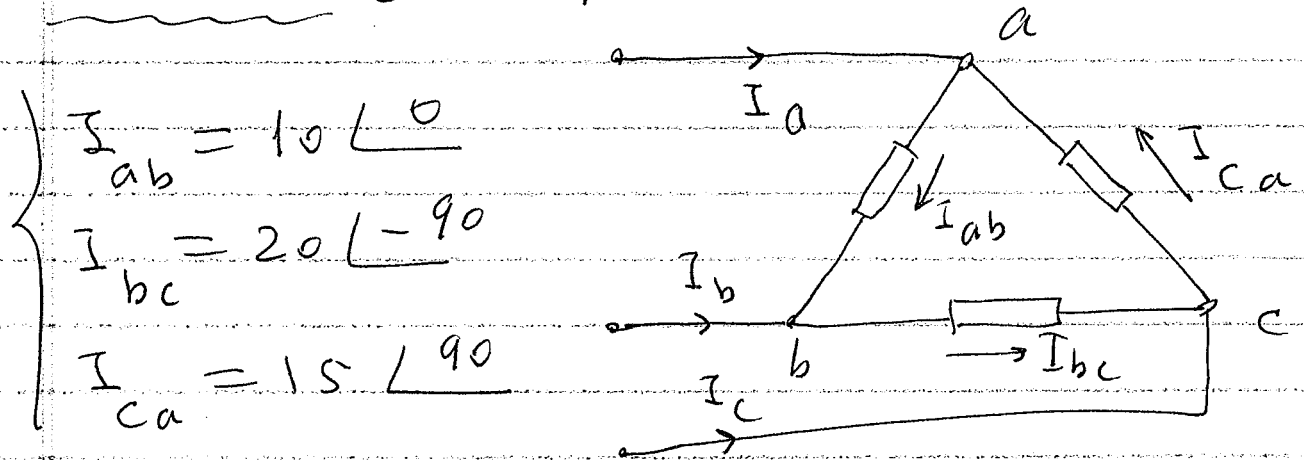 I_ab = 10 ∠0
I_bc = 20 ∠-90
I_ca = 15 ∠90
a
I_a
I_ca
I_ab
I_b
b
I_bc
c
I_c